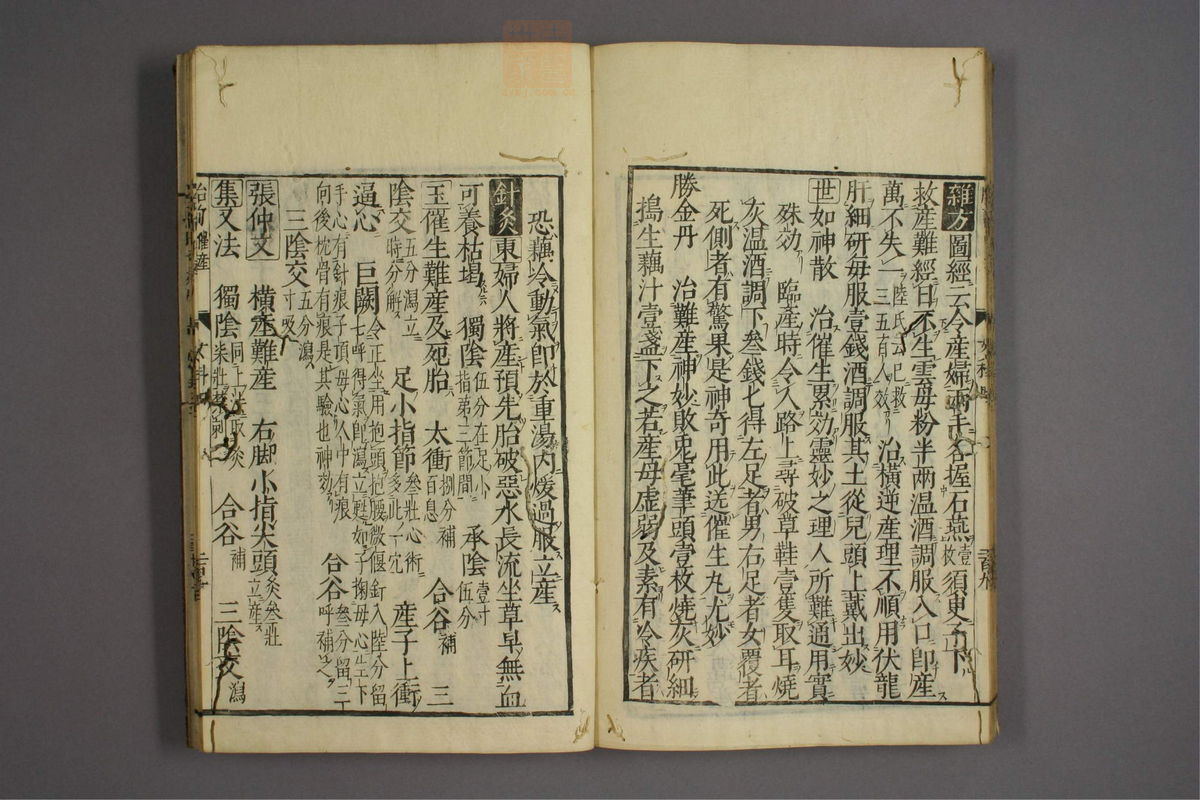 雜方圖經云令產婦兩手各握石燕壹枚須臾子下
救產難經日不生雲母粉半兩温酒調服入口即產
萬不失一陸氏云已救三五百人效 治橫逆產理不順用伏龍
肝細研每服壹錢酒調服其土從兒頭上戴出妙
世如神散 治催生累効靈妙之理人所難通用實
殊効 臨產時令人路上尋破草鞋壹隻取耳燒
灰温酒調下叄錢七得左足者男右足者女覆者
死側者有驚果是神奇用此送催生丸尤妙
勝金丹 治難產神妙敗兎毫筆頭壹枚燒灰研細
搗生藕汁壹盞下之若產母虛弱及素有冷疾者
恐藕冷動氣即於重湯內煖過服立產
針灸東婦人將產預先胎破惡水長流坐草早無血
可養枯堨 獨陰伍分在足小指第二節間 承陰壹寸伍分
玉催生難產及死胎 太衝捌分補百息 合谷補 三
陰交五分瀉立時分解 足小指節叄壯心術多此一穴 產子上衝
逼心 巨闕令正坐用抱頭抱腰微偃針入陸分留七呼得氣即瀉立甦如子掬母心生下
手心有針痕子頂母心人中有痕向後枕骨有痕是其驗也神効 合谷叄分留三呼補之
三陰交寸五分吸瀉
張仲文 橫產難產 右脚小指尖頭灸叄壯立產
集又法 獨陰同上法取灸柒壯 合谷補 三陰交瀉